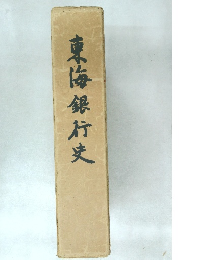 東海銀行史